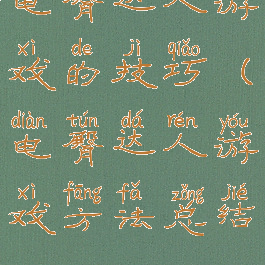 电臀达人游
xì de jì qiǎo
戏的技巧（
diàn tún dá rén yóu
电臀达人游
xì fāng fǎ zǒng jié
戏方法总结